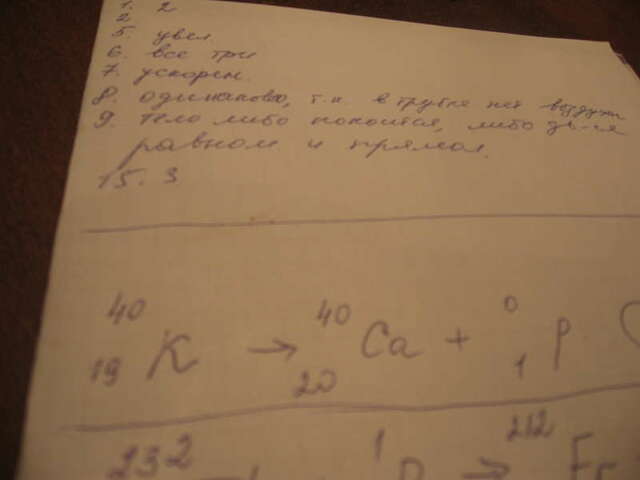 1. 2
2
5. увел
6. все три
7. ускорен.
8. одинаково, т.к. в трубке нет воздуха
9. тело либо покоится, либо дв-ся
равном и прямол.
15. 3
40 19 K → 40 20 Ca + 0 1 p
232 1 → 212